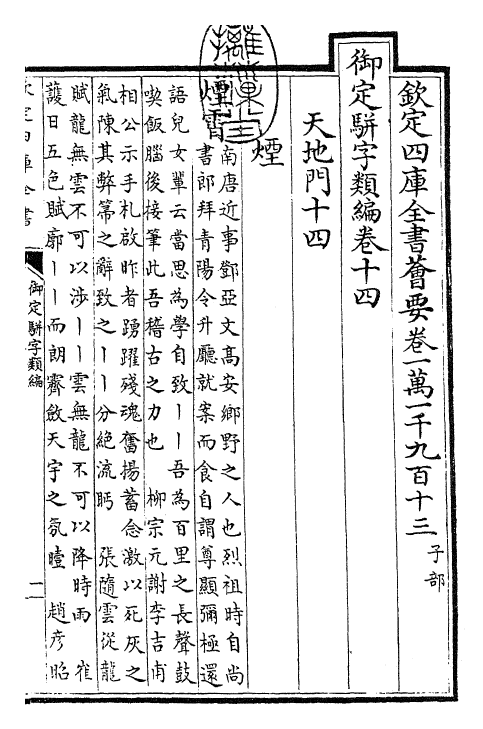 欽定四庫全書薈要卷一萬一千九百十三 子部
御定駢字類編卷十四
天地門十四
煙
煙霄
南唐近事鄧亞文高安鄉野之人也烈祖時自尚
書郎拜青陽令升廳就案而食自謂尊顯彌極還
語兒女輩云當思為學自致丨丨吾為百里之長聲鼓
喫飯腦後接筆此吾稽古之力也 柳宗元謝李吉甫
相公示手札啟昨者踴躍殘魂奮揚蓄念激以死灰之
氣陳其弊帚之辭致之丨丨分絕流眄 張隨雲從龍
賦龍無雲不可以涉丨丨雲無龍不可以降時雨 崔
護日五色賦廓丨丨而朗霽斂天宇之氛曀 趙彥昭
欽定四庫全書
御定駢字類編
一